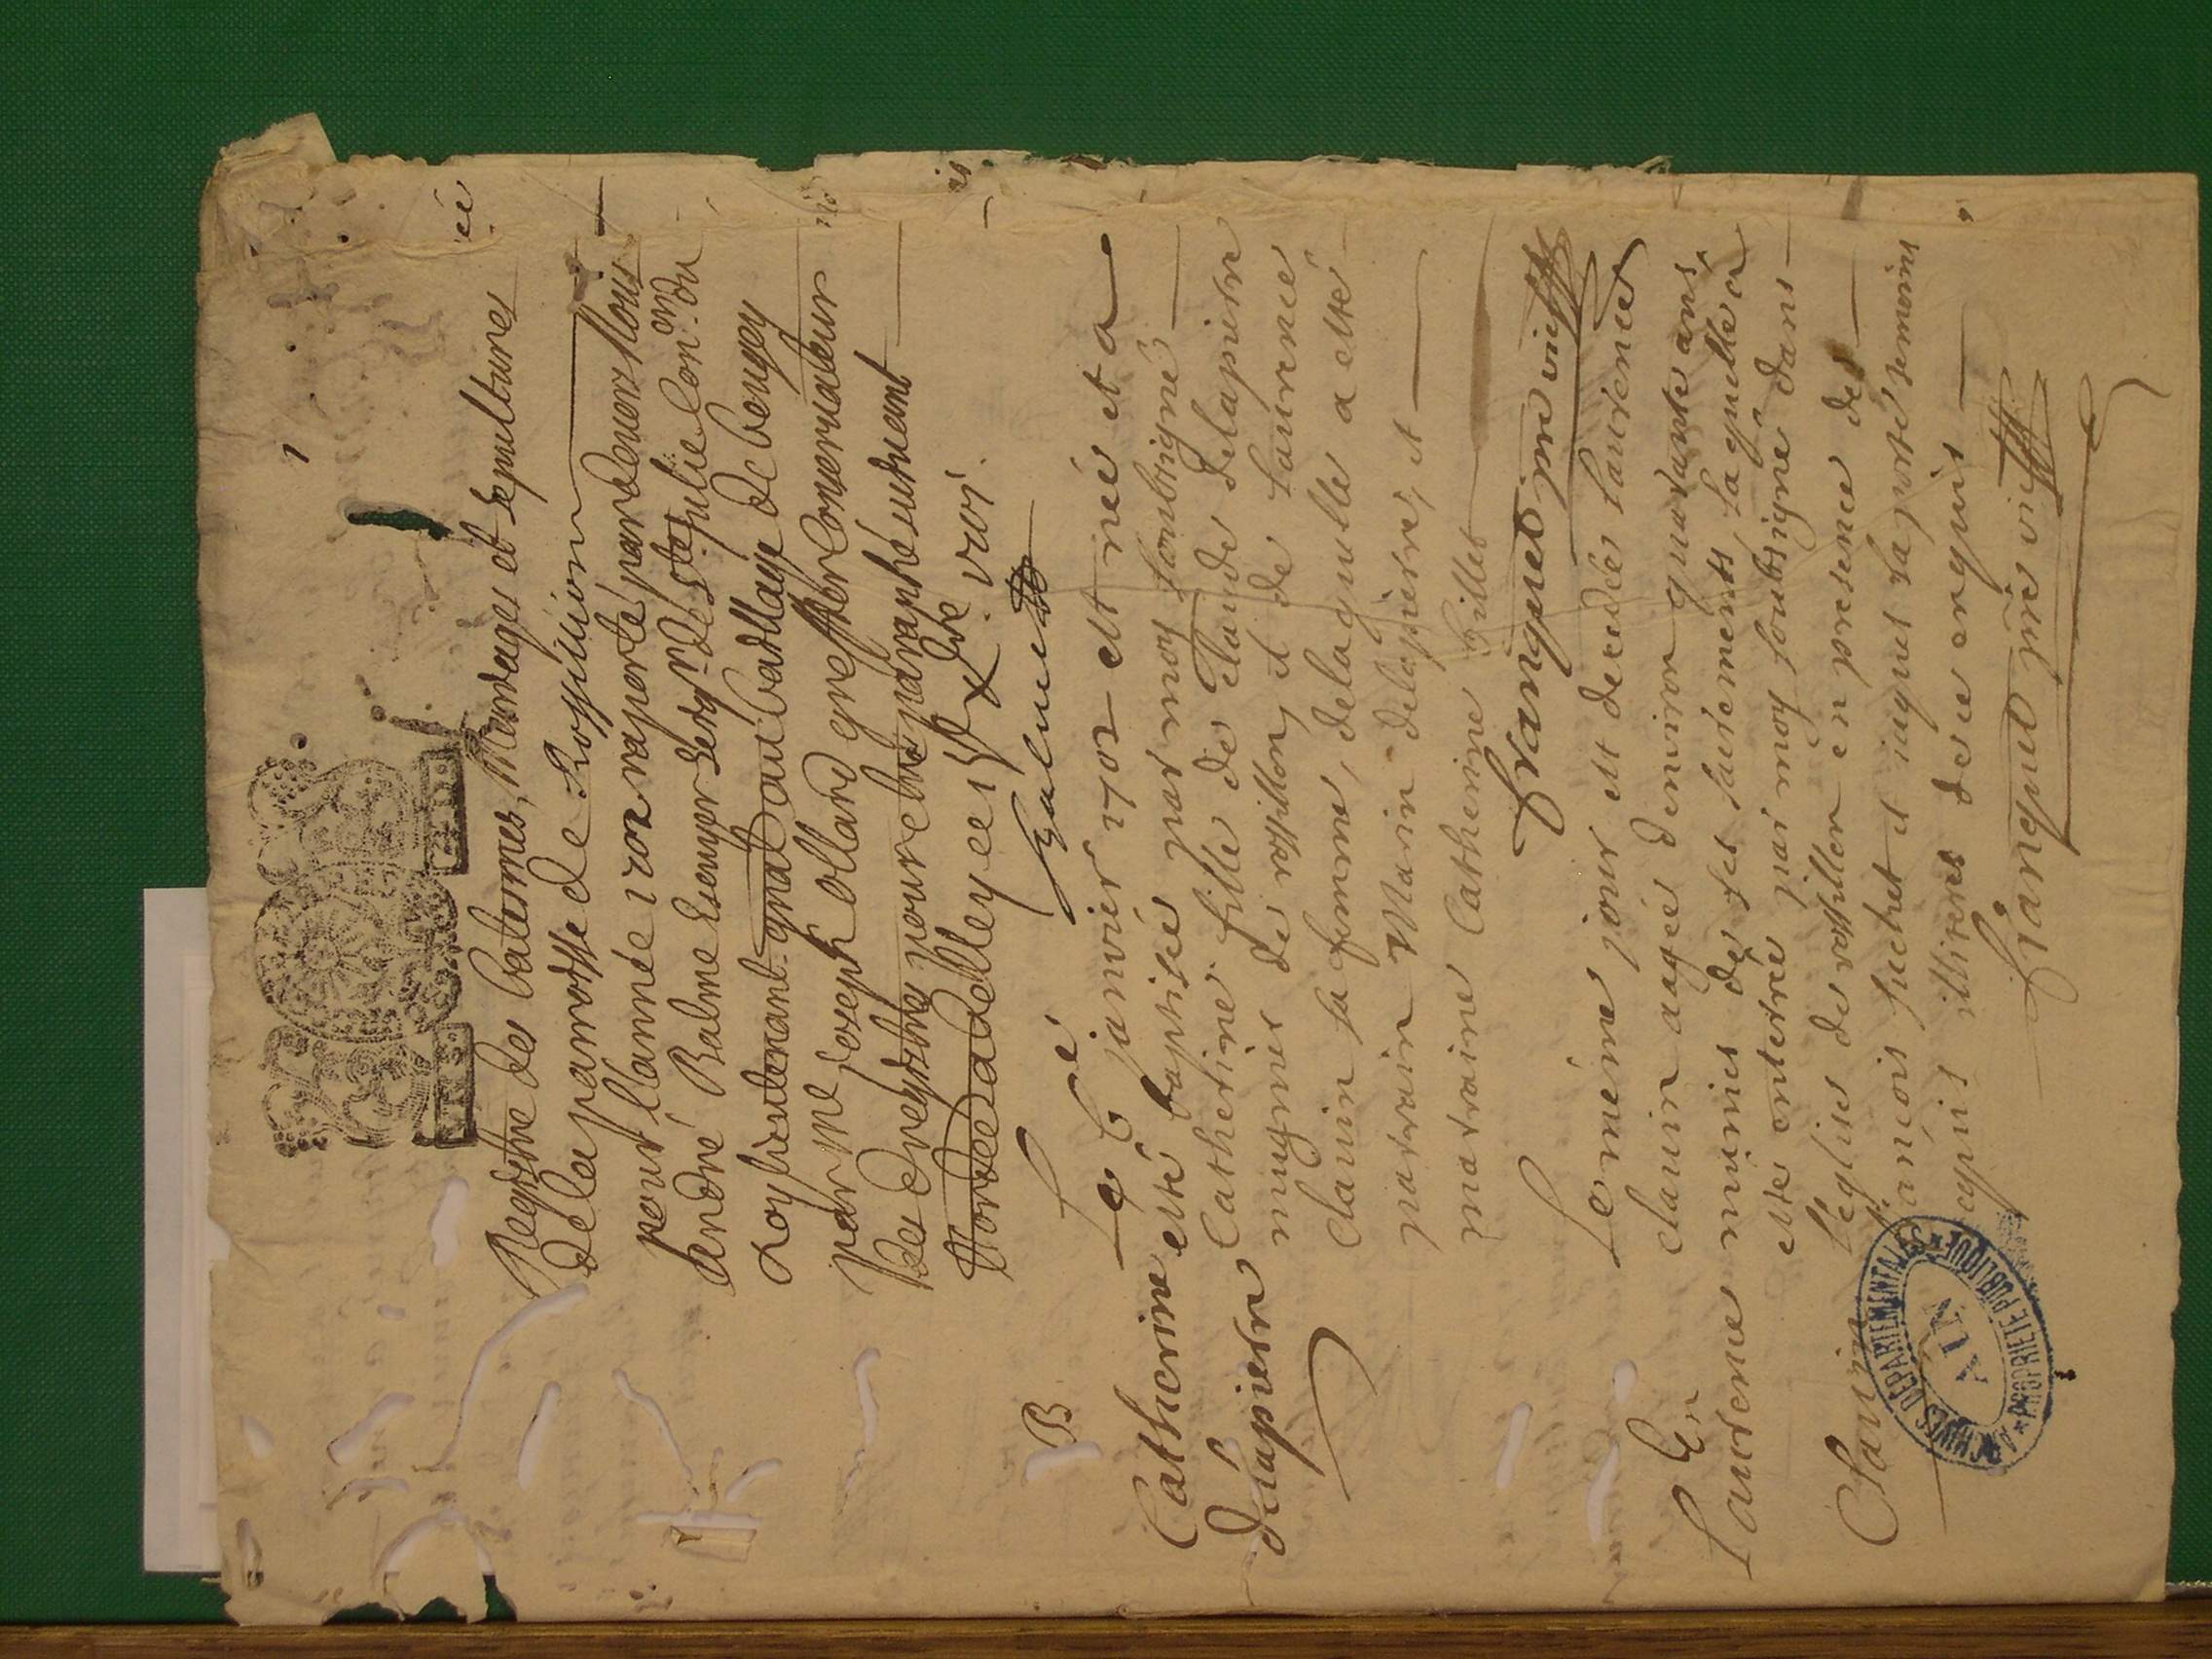 1
Registre des batesmes, Mariages et Sepultures
de la parroisse de Rossillion
pour l'année 1702 raporté par devers Nous
André Balme Escuyer Seigr. de Ste Julie Con.er du
Roy lieutenant gnal au bailliage de beugey
par Me Joseph Collard greffier Conservateur
des registres pour estre paraphé suivant
a belley ce
Balme
B
Catherine
delapierre
Le 6e janvier 1702 est née et a
esté baptisée par moy soubsigné
Catherine fille de Claude delapierre
mugnier de rossillon, et de laurence
clauin sa femme, de laquelle a esté
parrain Marin delapierre, et
marraine Catherine billet
franquet pre vic
En
Laurence
Clauin
Le même jour est decedée laurence
clauin aagée denviron quarante ans
munies de ses sacrements laquelle a
esté enterrée par moy soubsigné dans
l'eglise de rossillon en presence de
françois suchet et jaques laporte temoins
requis illiterés de ce enquis
franquet pre vic
ARCHIVES DEPARTEMENTALES
AIN
PROPRIETE PUBLIQUE